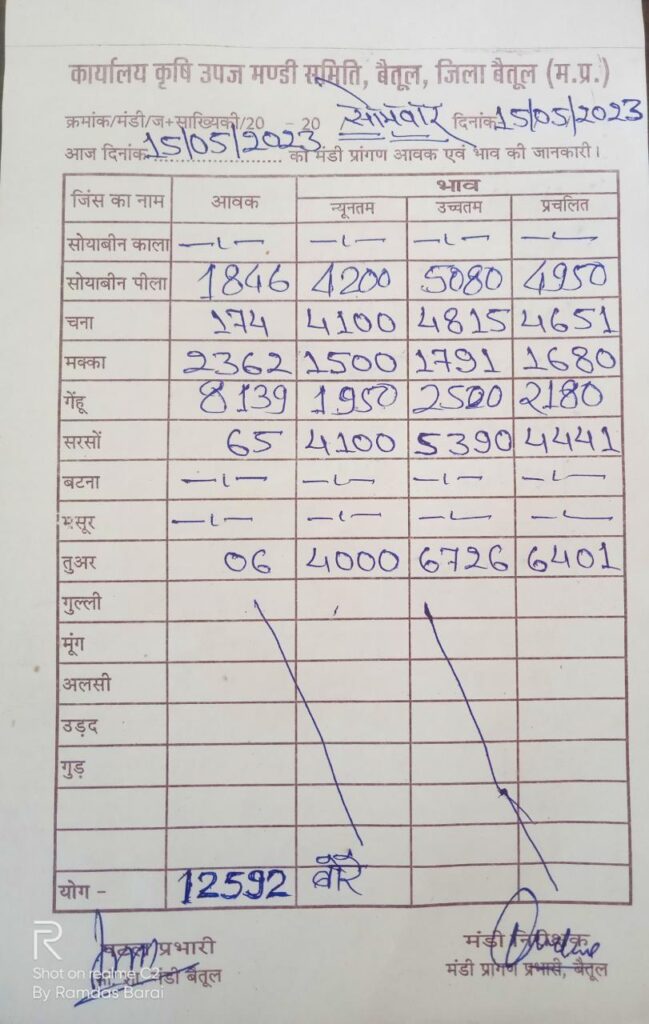 कार्यालय कृषि उपज मण्डी समिति, बैतूल, जिला बैतूल (म.प्र.)
क्रमांक/मंडी/ज+सांख्यिकी/20 - 20 सोमवार दिनांक 15/05/2023
आज दिनांक 15/05/2023 को मंडी प्रांगण आवक एवं भाव की जानकारी।
जिंस का नाम आवक भाव
न्यूनतम उच्चतम प्रचलित
सोयाबीन काला —ι— —ι— —ι— —ι—
सोयाबीन पीला 1846 4200 5080 4950
चना 174 4100 4815 4651
मक्का 2362 1500 1791 1680
गेंहू 8139 1950 2500 2180
सरसों 65 4100 5390 4441
बटना —ι— —ι— —ι— —ι—
मसूर —ι— —ι— —ι— —ι—
तुअर 06 4000 6726 6401
गुल्ली
मूंग
अलसी
उड़द
गुड़
योग - 12592 बोरे
प्रभारी मंडी निरीक्षक
मंडी बैतूल मंडी प्रांगण प्रभारी, बैतूल
R
Shot on realme C2
By Ramdas Barai